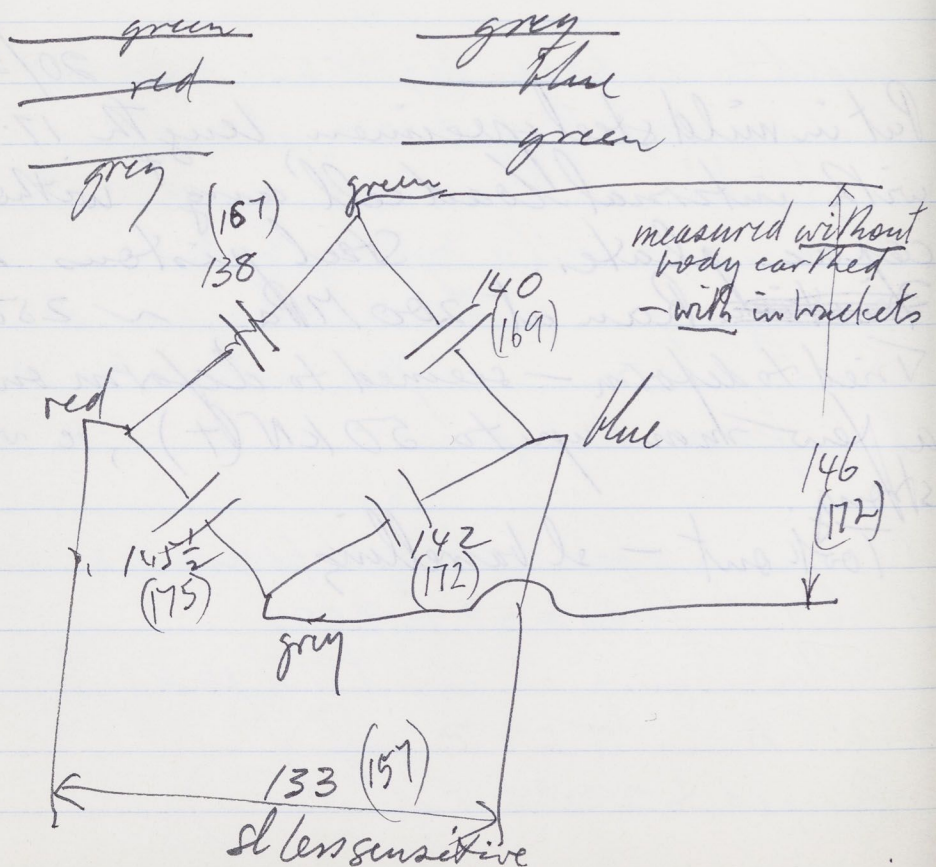 green grey
red blue
green
grey
green
(167)
138
140
(169)
measured without
body earthed
- with in brackets
red
blue
146
(172)
145½
(175)
142
(172)
grey
133 (157)
sl less sensitive